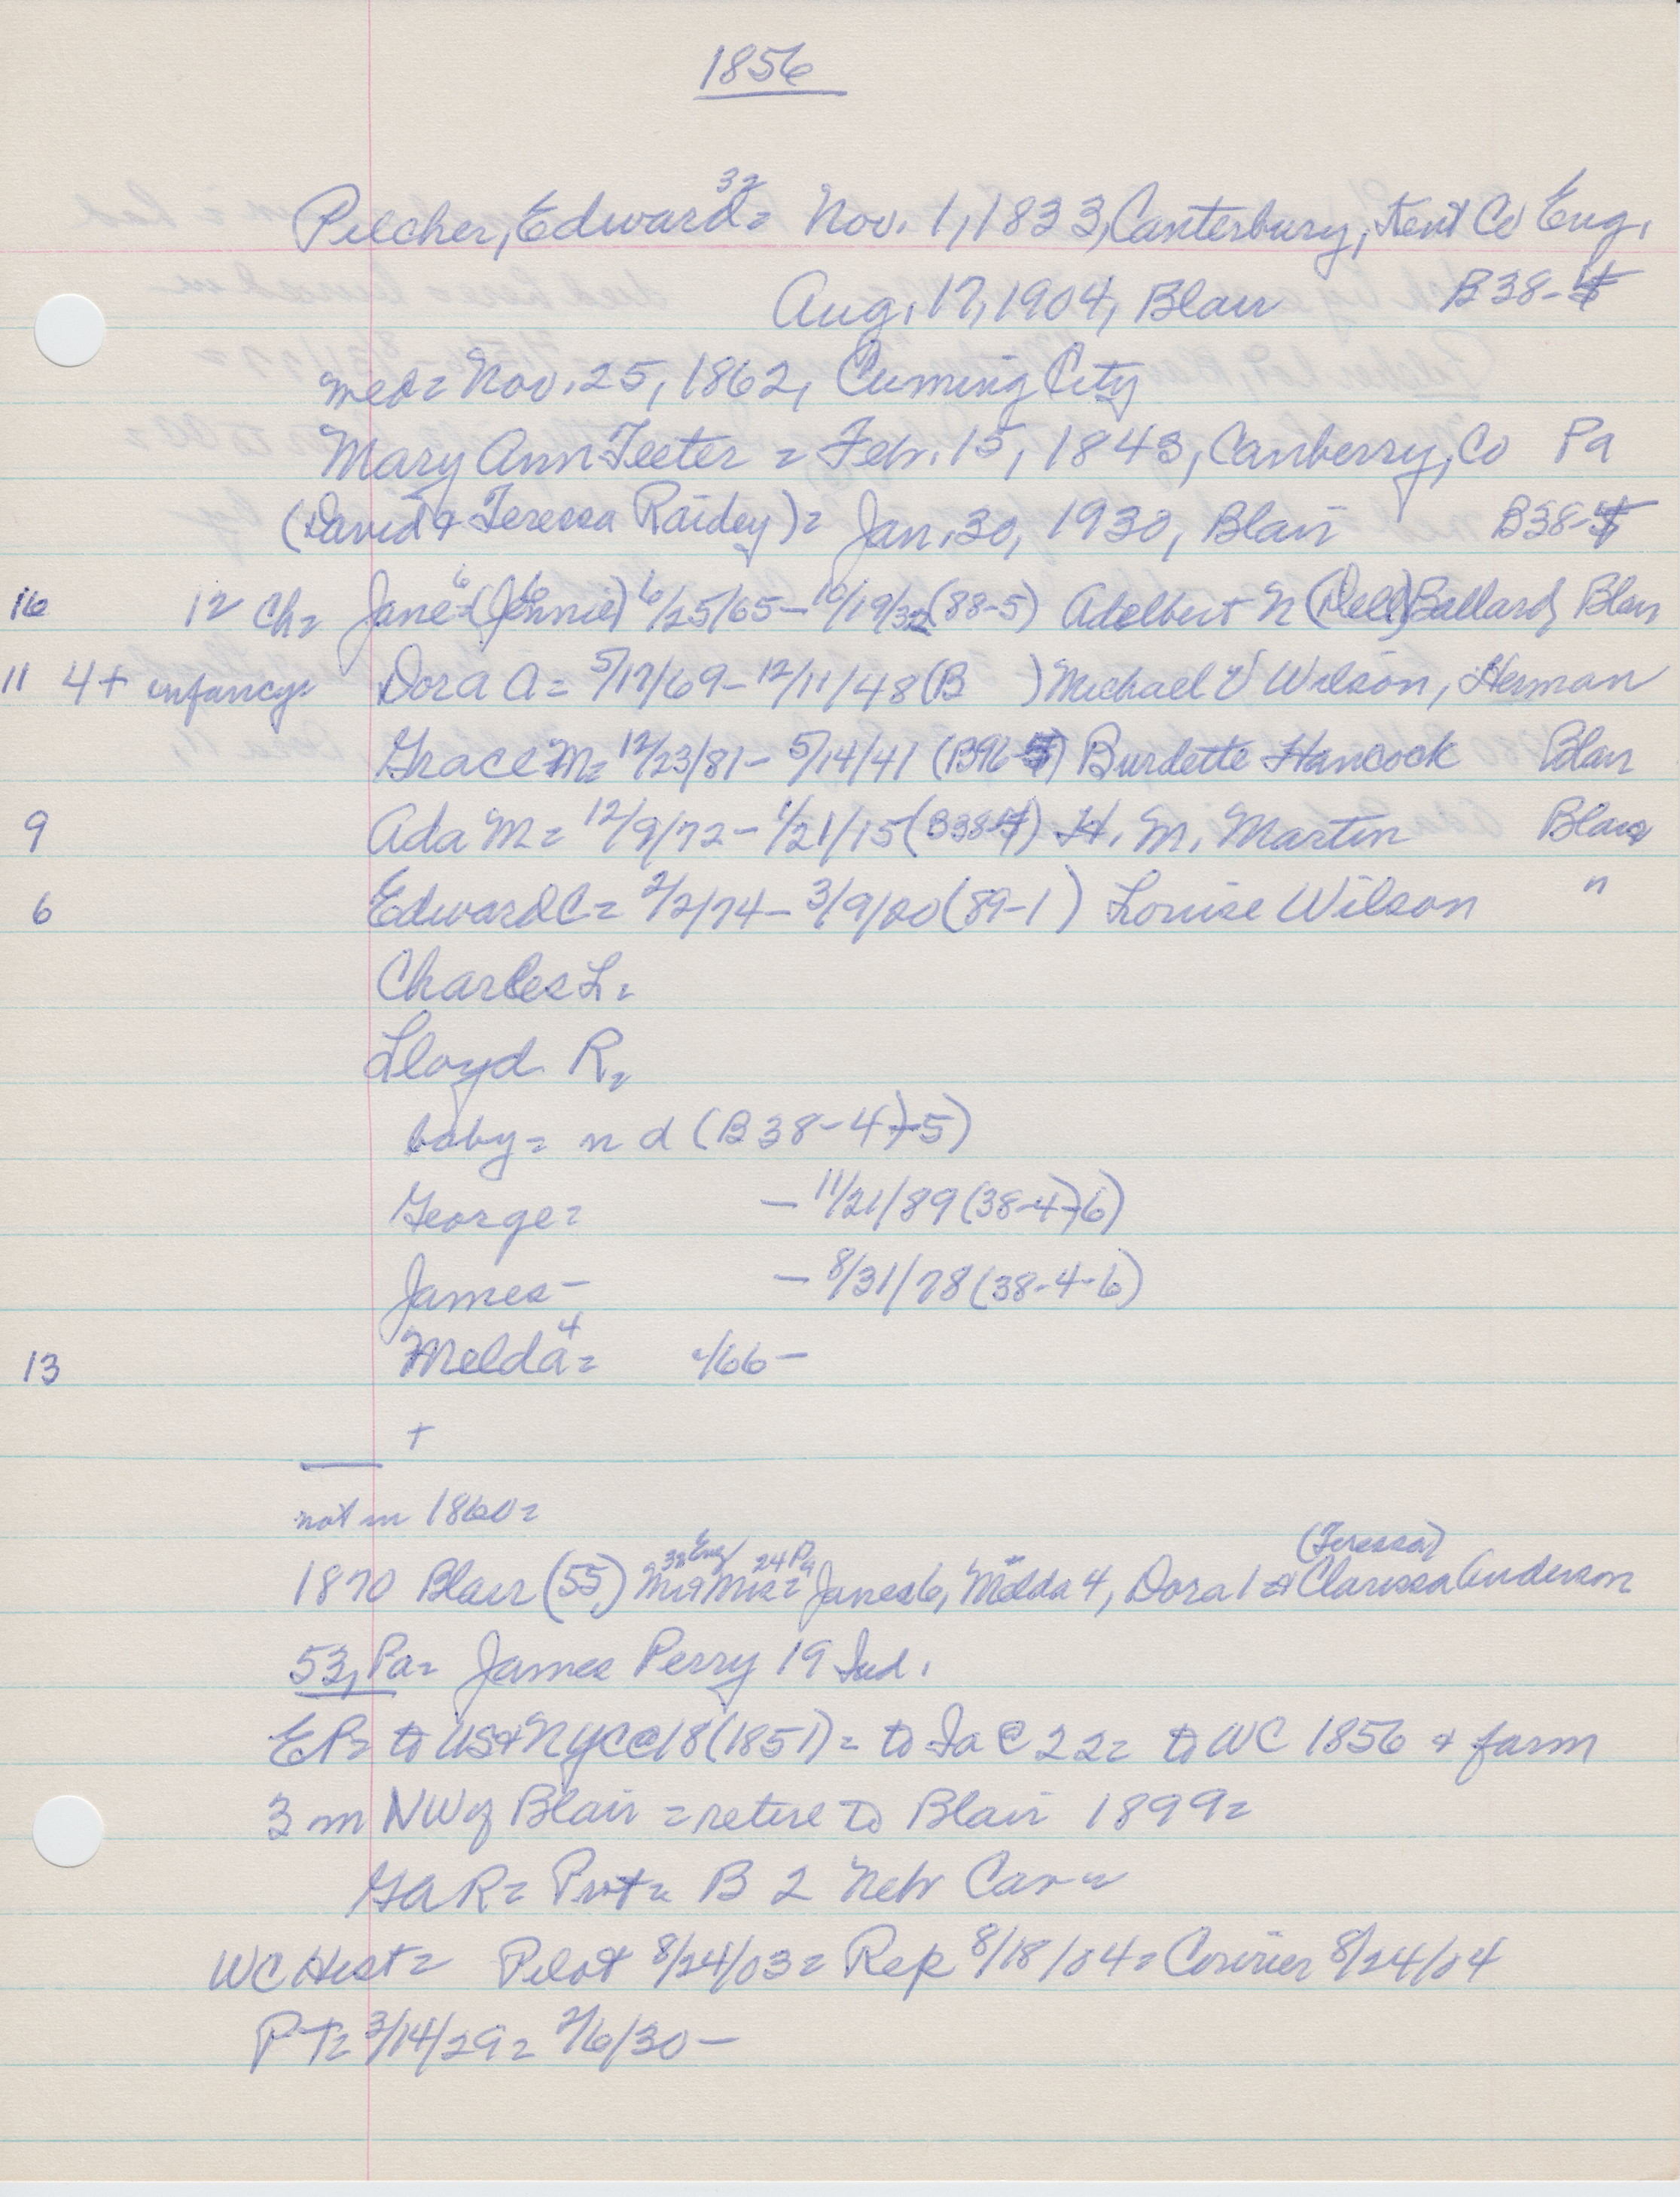 1856
Pilcher, Edward 32 = Nov. 1, 1833, Canterbury, Kent Co Eng.
Aug. 17, 1904, Blair B38-4
med = Nov. 25, 1862, Cuming City
Mary Ann Teeter = Feb. 15, 1843, Canberry, Co Pa
(David + Teressa Raidey) = Jan. 30, 1930, Blair B38-4
16 12 ch = Jane 6 = (Jennie) 6/25/65 - 10/19/32 (88-5) Adelbert N (Dell) Ballard, Blair
11 4 + infancy = Dora A = 5/17/69 - 12/11/48 (B ) Michael V Wilson, Herman
Grace M = 12/23/81 - 5/14/41 (B96-5) Burdette Hancock Blair
9 Ada M = 12/9/72 - 1/21/15 (B38-4) H. M. Martin Blair
6 Edward C = 2/2/74 - 3/9/20 (89-1) Louise Wilson "
Charles L =
Lloyd R =
baby = n d (B38-4)-5)
George = - 11/21/89 (38-4)-6)
James - - 8/31/78 (38-4-6)
13 Melda 4 = /66 -
+
not in 1860 =
1870 Blair (55) Mr 38 Eng + Mrs 24 Pa = Jane 6, Melda 4, Dora 1 = + Clarissa (Teressa) Anderson
53, Pa = James Perry 19 Ind.
EP = to US + NYC @ 18 (1851) = to Ia @ 22 = to WC 1856 + farm
3 m NW of Blair = retire to Blair 1899 =
GAR = Pvt = B 2 Neb Cav =
WC Hist = Pilot 8/24/03 = Rep 8/18/04 = Courier 8/24/04
PT = 3/14/29 = 2/6/30 -